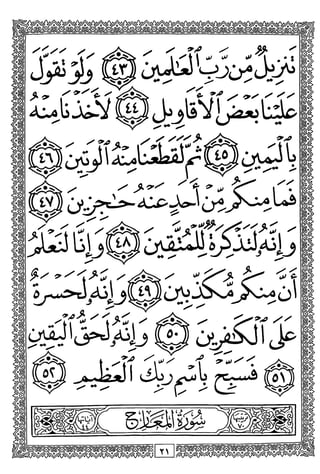 تَنزِيلٌ مِّن رَّبِّ ٱلْعَٰلَمِينَ ٤٣ وَلَوْ تَقَوَّلَ
عَلَيْنَا بَعْضَ ٱلْأَقَاوِيلِ ٤٤ لَأَخَذْنَا مِنْهُ
بِٱلْيَمِينِ ٤٥ ثُمَّ لَقَطَعْنَا مِنْهُ ٱلْوَتِينَ ٤٦
فَمَا مِنكُم مِّنْ أَحَدٍ عَنْهُ حَٰجِزِينَ ٤٧
وَإِنَّهُۥ لَتَذْكِرَةٌ لِّلْمُتَّقِينَ ٤٨ وَإِنَّا لَنَعْلَمُ
أَنَّ مِنكُم مُّكَذِّبِينَ ٤٩ وَإِنَّهُۥ لَحَسْرَةٌ
عَلَى ٱلْكَٰفِرِينَ ٥٠ وَإِنَّهُۥ لَحَقُّ ٱلْيَقِينِ
٥١ فَسَبِّحْ بِٱسْمِ رَبِّكَ ٱلْعَظِيمِ ٥٢
سُورَةُ المَعَارِج
٢١